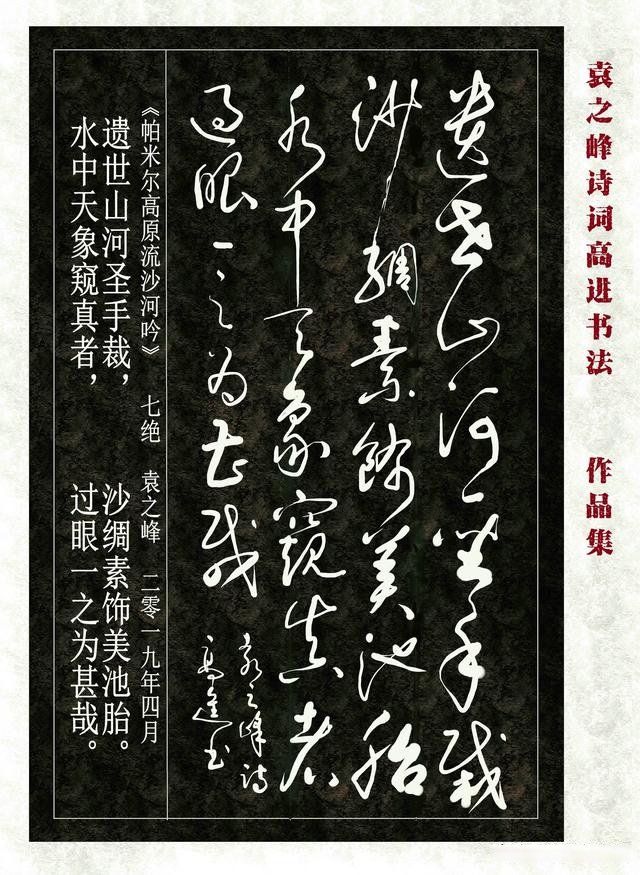 袁之峰诗词高进书法 作品集
遗世山河圣手裁
沙绸素饰美池胎
水中天象窥真者
过眼一之为甚哉
袁之峰诗
高进书
《帕米尔高原流沙河吟》 七绝 袁之峰 二零一九年四月
遗世山河圣手裁， 沙绸素饰美池胎。
水中天象窥真者， 过眼一之为甚哉。